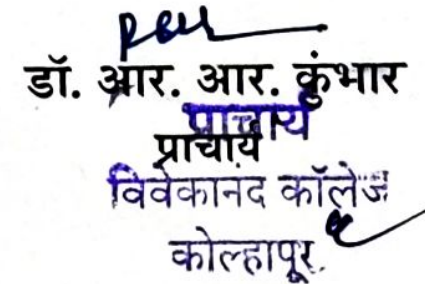 डॉ. आर. आर. कुंभार
प्राचार्य
प्राचार्य
विवेकानंद कॉलेज
कोल्हापूर.